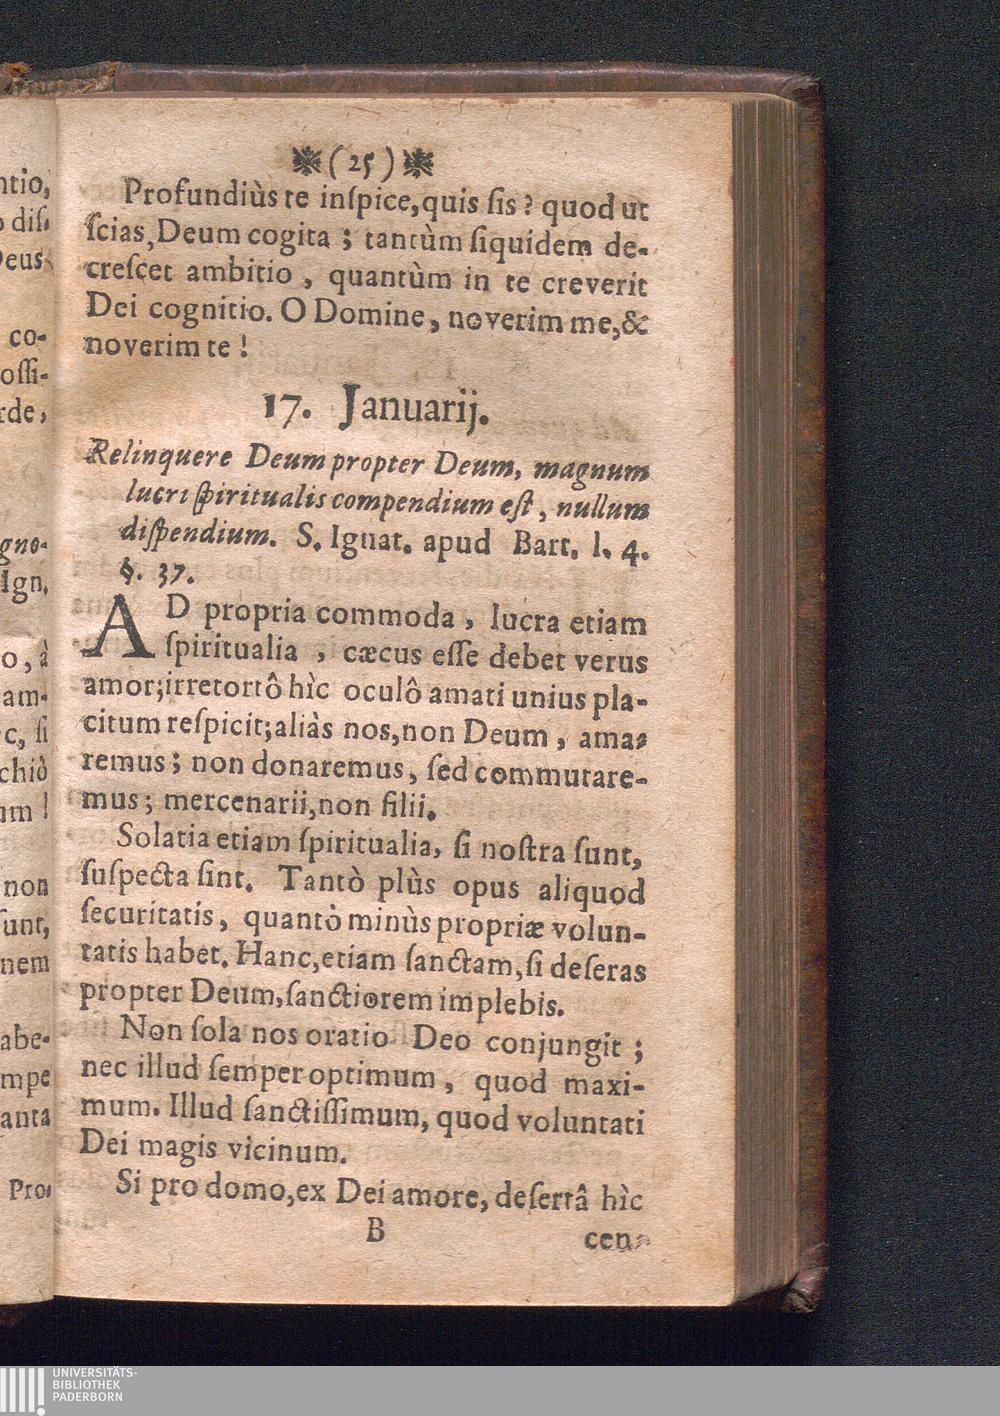 (25)
Profundiùs te inſpice, quis ſis? quod ut
ſcias, Deum cogita; tantùm ſiquidem de-
creſcet ambitio, quantùm in te creverit
Dei cognitio. O Domine, noverim me, &
noverim te!
17. Januarij.
Relinquere Deum propter Deum, magnum
lucri ſpiritualis compendium eſt, nullum
diſpendium. S. Ignat. apud Bart. l. 4.
§. 37.
AD propria commoda, lucra etiam
ſpiritualia, cæcus eſſe debet verus
amor; irretortô hìc oculô amati unius pla-
citum reſpicit; aliàs nos, non Deum, ama-
remus; non donaremus, ſed commutare-
mus; mercenarii, non filii.
Solatia etiam ſpiritualia, ſi noſtra ſunt,
ſuſpecta ſint. Tantò plùs opus aliquod
ſecuritatis, quantò minùs propriæ volun-
tatis habet. Hanc, etiam ſanctam, ſi deſeras
propter Deum, ſanctiorem implebis.
Non ſola nos oratio Deo conjungit;
nec illud ſemper optimum, quod maxi-
mum. Illud ſanctiſſimum, quod voluntati
Dei magis vicinum.
Si pro domo, ex Dei amore, deſertâ hìc
B
cen-
ntio,
diſ-
Deus
co-
oſſi-
rde,
gno-
Ign.
o, à
am-
c, ſi
chiò
um!
non
ſunt,
nem
abe-
mpe
anta
Pro-
UNIVERSITÄTS-
BIBLIOTHEK
PADERBORN